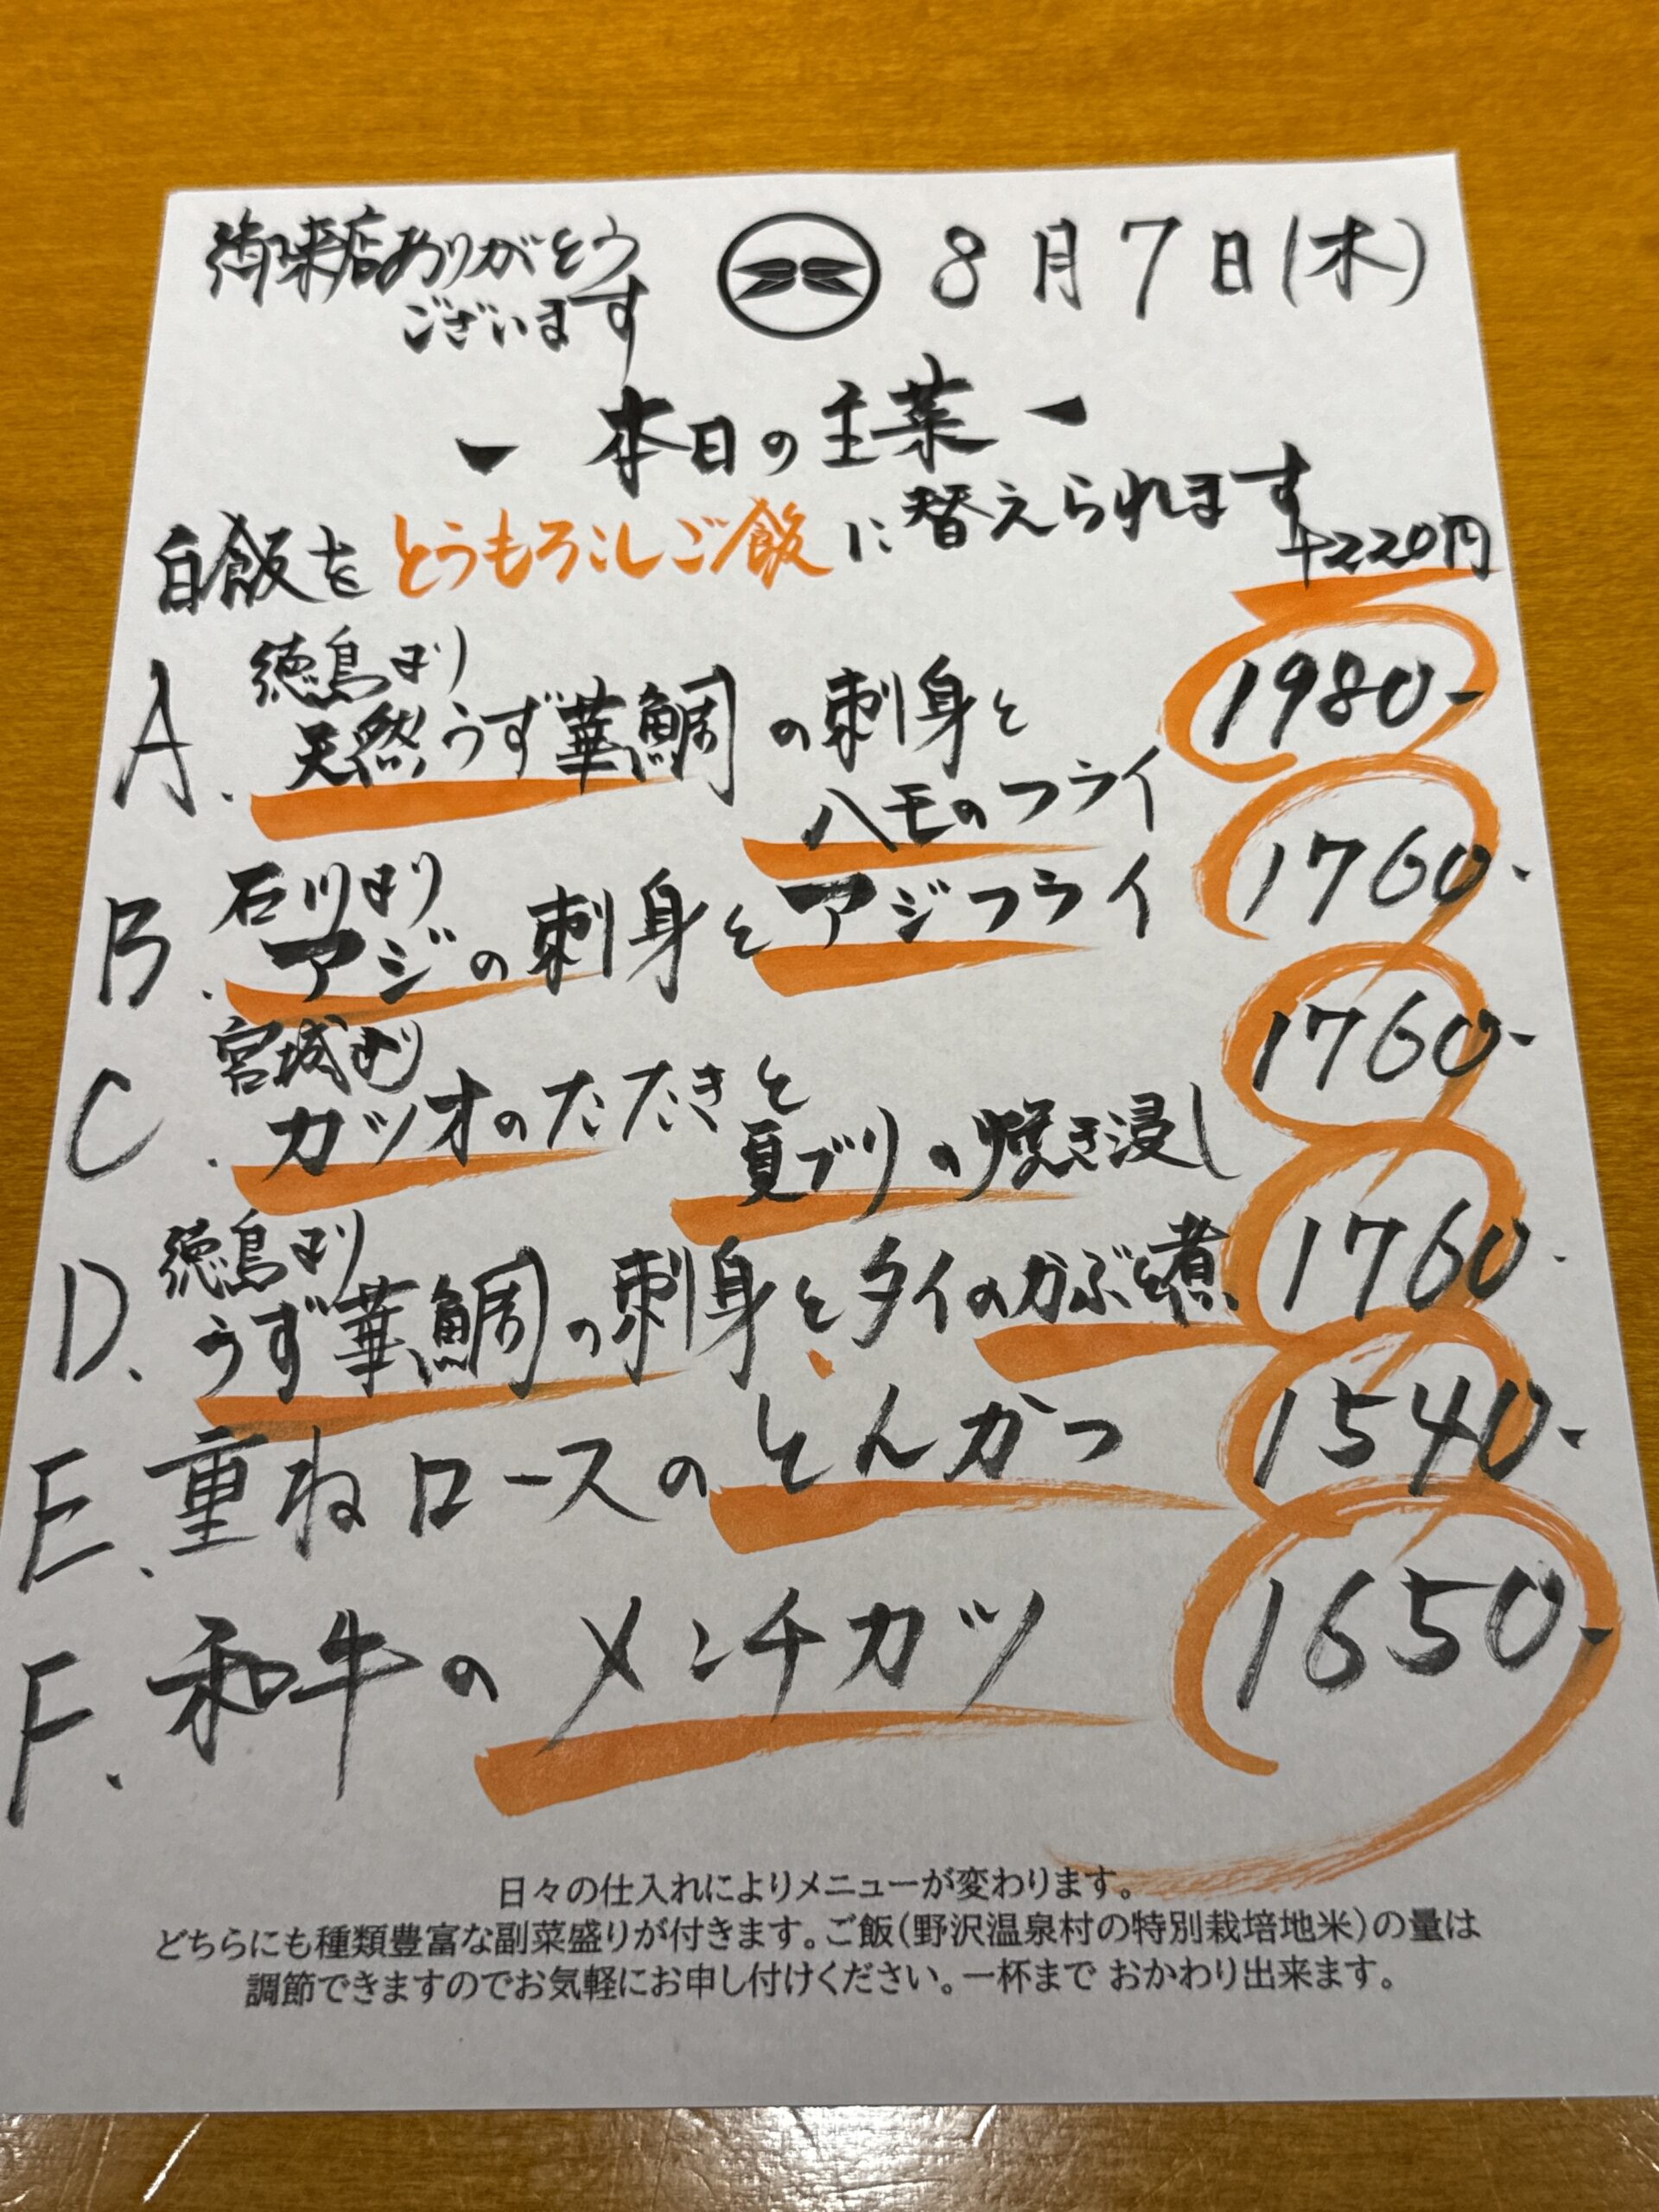 御来店ありがとう
ございます
8月7日(木)
ー 本日の主菜 ー
白飯をとうもろこしご飯に替えられます
+220円
A. 徳島より
天然うず華鯛の刺身と
ハモのフライ
1980-
B. 石川より
アジの刺身とアジフライ
1760-
C. 宮城より
カツオのたたきと
夏ブリの焼き浸し
1760-
D. 徳島より
うず華鯛の刺身とタイのかぶと煮
1760-
E. 重ねロースのとんかつ
1540-
F. 和牛のメンチカツ
1650-
日々の仕入れによりメニューが変わります。
どちらにも種類豊富な副菜盛りが付きます。ご飯(野沢温泉村の特別栽培地米)の量は
調節できますのでお気軽にお申し付けください。一杯まで おかわり出来ます。